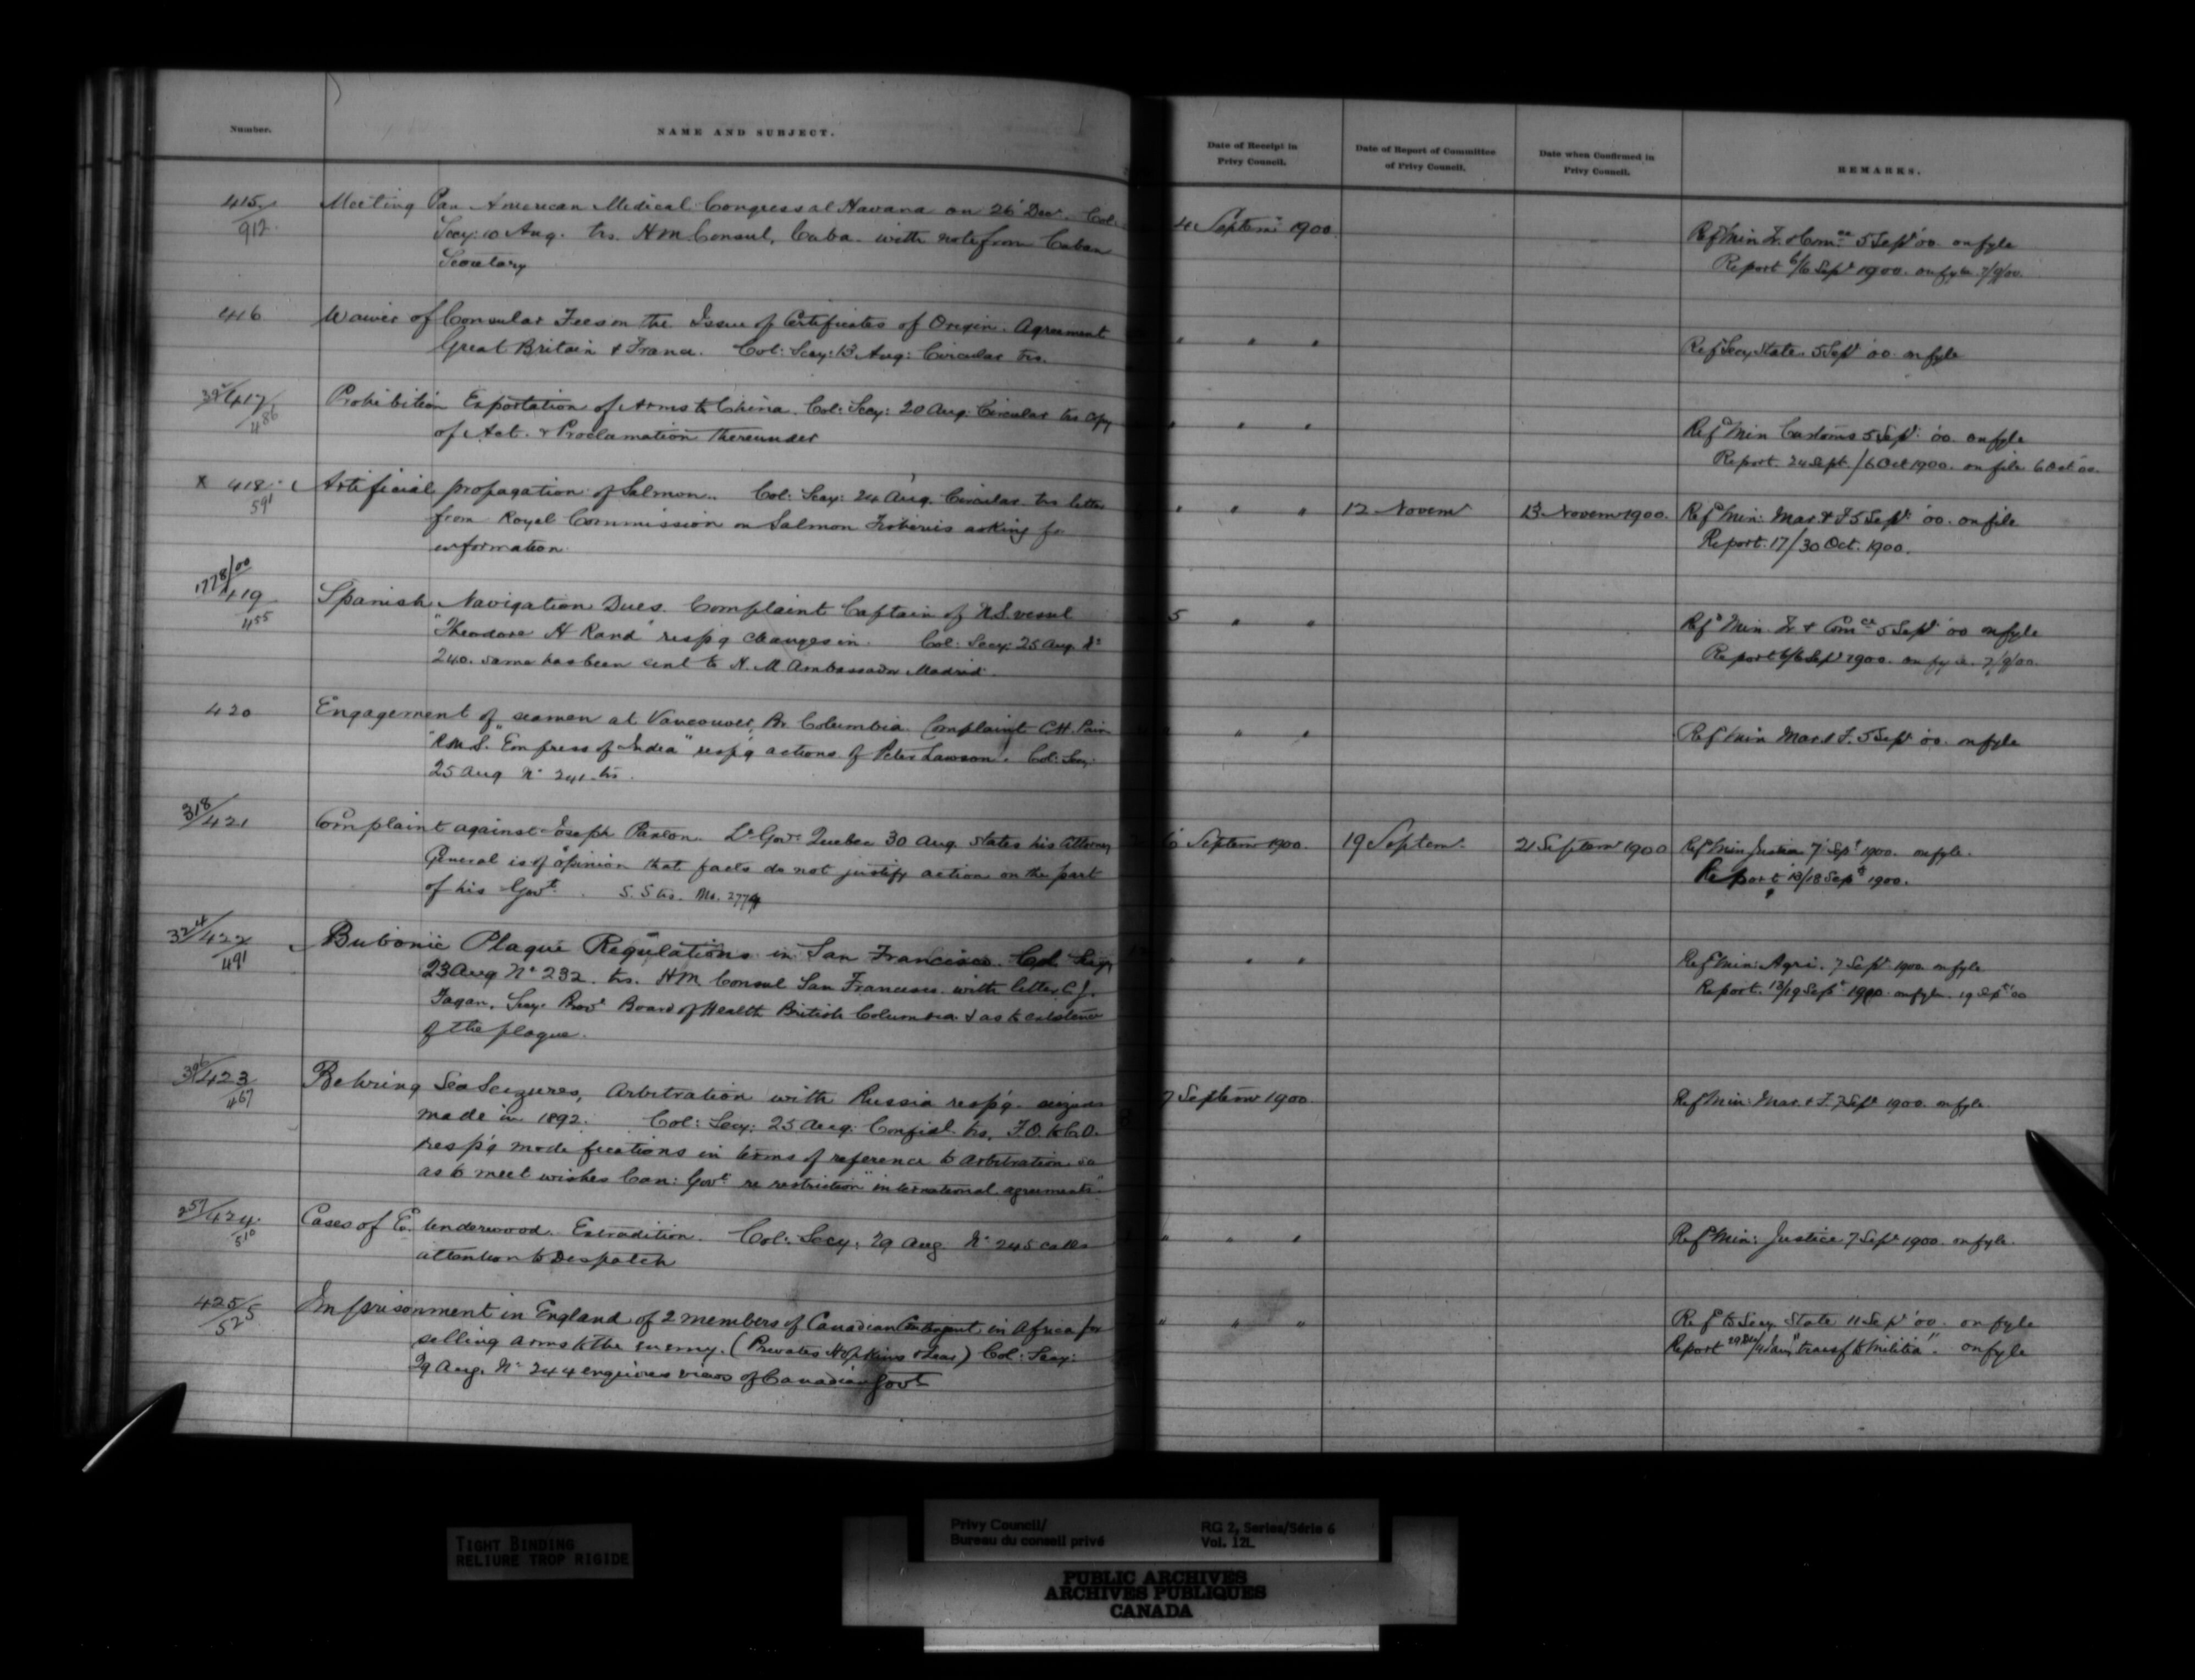 Number.
NAME AND SUBJECT.
Date of Receipt in
Privy Council.
Date of Report of Committee
of Privy Council.
Date when Confirmed in
Privy Council.
REMARKS.
415/912
Meeting Pan American Medical Congress at Havana on 26 Decr. Col:
Secy: 10 Aug. trs. H M Consul, Cuba. with note from Cuban
Secretary
4 Septemr 1900
Refd Min T. & Comce 5 Sept '00. on fyle
Report 6/6 Sept 1900. on fyle 7/9/00.
416
Waiver of Consular Fees on the Issue of Certificates of Origin. Agreement
Great Britain & France. Col: Secy: 13 Aug: Circular trs.
" " "
Ref Secy State. 5 Sept '00. on fyle
417/486
Prohibition Exportation of Arms to China. Col: Secy: 20 Aug. Circular trs copy
of Act. & Proclamation thereunder
" " "
Refd Min Customs 5 Sept. '00. on fyle
Report. 24 Sept. / 6 Oct 1900. on file 6 Oct 00.
X 418/591
Artificial propagation of Salmon. Col: Secy: 24 Aug. Circular trs letter
from Royal Commission on Salmon Fisheries asking for
information.
" " "
12 Novemr
13 Novemr 1900.
Refd Min: Mar. & F 5 Sept. '00. on file
Report. 17/30 Oct. 1900.
1778/00
419/455
Spanish Navigation Dues. Complaint Captain of N.S. vessel
"Theodore H Rand" resp'g changes in. Col: Secy: 25 Aug. No
240. same has been sent to H. M Ambassador Madrid.
5 " "
Refd Min. T. & Comce 5 Sept. '00 on fyle
Report 6/6 Sept 1900. on fyle. 7/9/00.
420
Engagement of seamen at Vancouver, Br Columbia. Complaint C.H.
R.M.S. "Empress of India" resp'g actions of Peter Lawson. Col: Secy:
25 Aug No 241 trs.
" " "
Refd Min Mar & F. 5 Sept '00. on fyle
318/421
Complaint against Joseph Paxton. Lt Govr Quebec 30 Aug. states his Attorney
General is of opinion that facts do not justify action on the part
of his Govt. S.S trs. No. 2774
6 Septemr 1900.
19 Septemr
21 Septemr 1900
Refd Min Justice 7 Sept 1900. on fyle.
Report 13/18 Sept 1900.
324/422/491
Bubonic Plague Regulations in San Francisco. Col. Secy
23 Aug No 232. trs. H M Consul San Francisco with letter C. J.
Fagan, Secy. Provl Board of Health British Columbia & as to existence
of the plague.
" " "
Refd Min: Agri. 7 Sept 1900 on fyle
Report. 13/19 Sept 1900. on fyle. 19 Sept '00
396/423/467
Behring Sea Seizures, Arbitration with Russia resp'g. seizures
made in 1892. Col: Secy: 25 Aug. Confidl. trs, F.O. to C.O.
resp'g modifications in terms of reference to Arbitration so
as to meet wishes Can: Govt re restriction "international agreements"
7 Septemr 1900
Refd Min: Mar. & F. 7 Sept 1900. on fyle.
257/424/510
Cases of E. Underwood. Extradition. Col: Secy: 29 Aug. No 245 calls
attention to Despatch
" " "
Refd Min: Justice 7 Sept 1900. on fyle.
425/525
Imprisonment in England of 2 members of Canadian Contingent in Africa for
selling arms to the enemy. (Privates Hopkins & Lear) Col: Secy:
29 Aug. No 244 enquires views of Canadian Govt
" " "
Refd to Secy State 11 Sept '00. on fyle
Report "transf to Militia". on fyle
TIGHT BINDING
RELIURE TROP RIGIDE
Privy Council/
Bureau du conseil privé
RG 2, Series/Série 6
Vol. 12L
PUBLIC ARCHIVES
ARCHIVES PUBLIQUES
CANADA